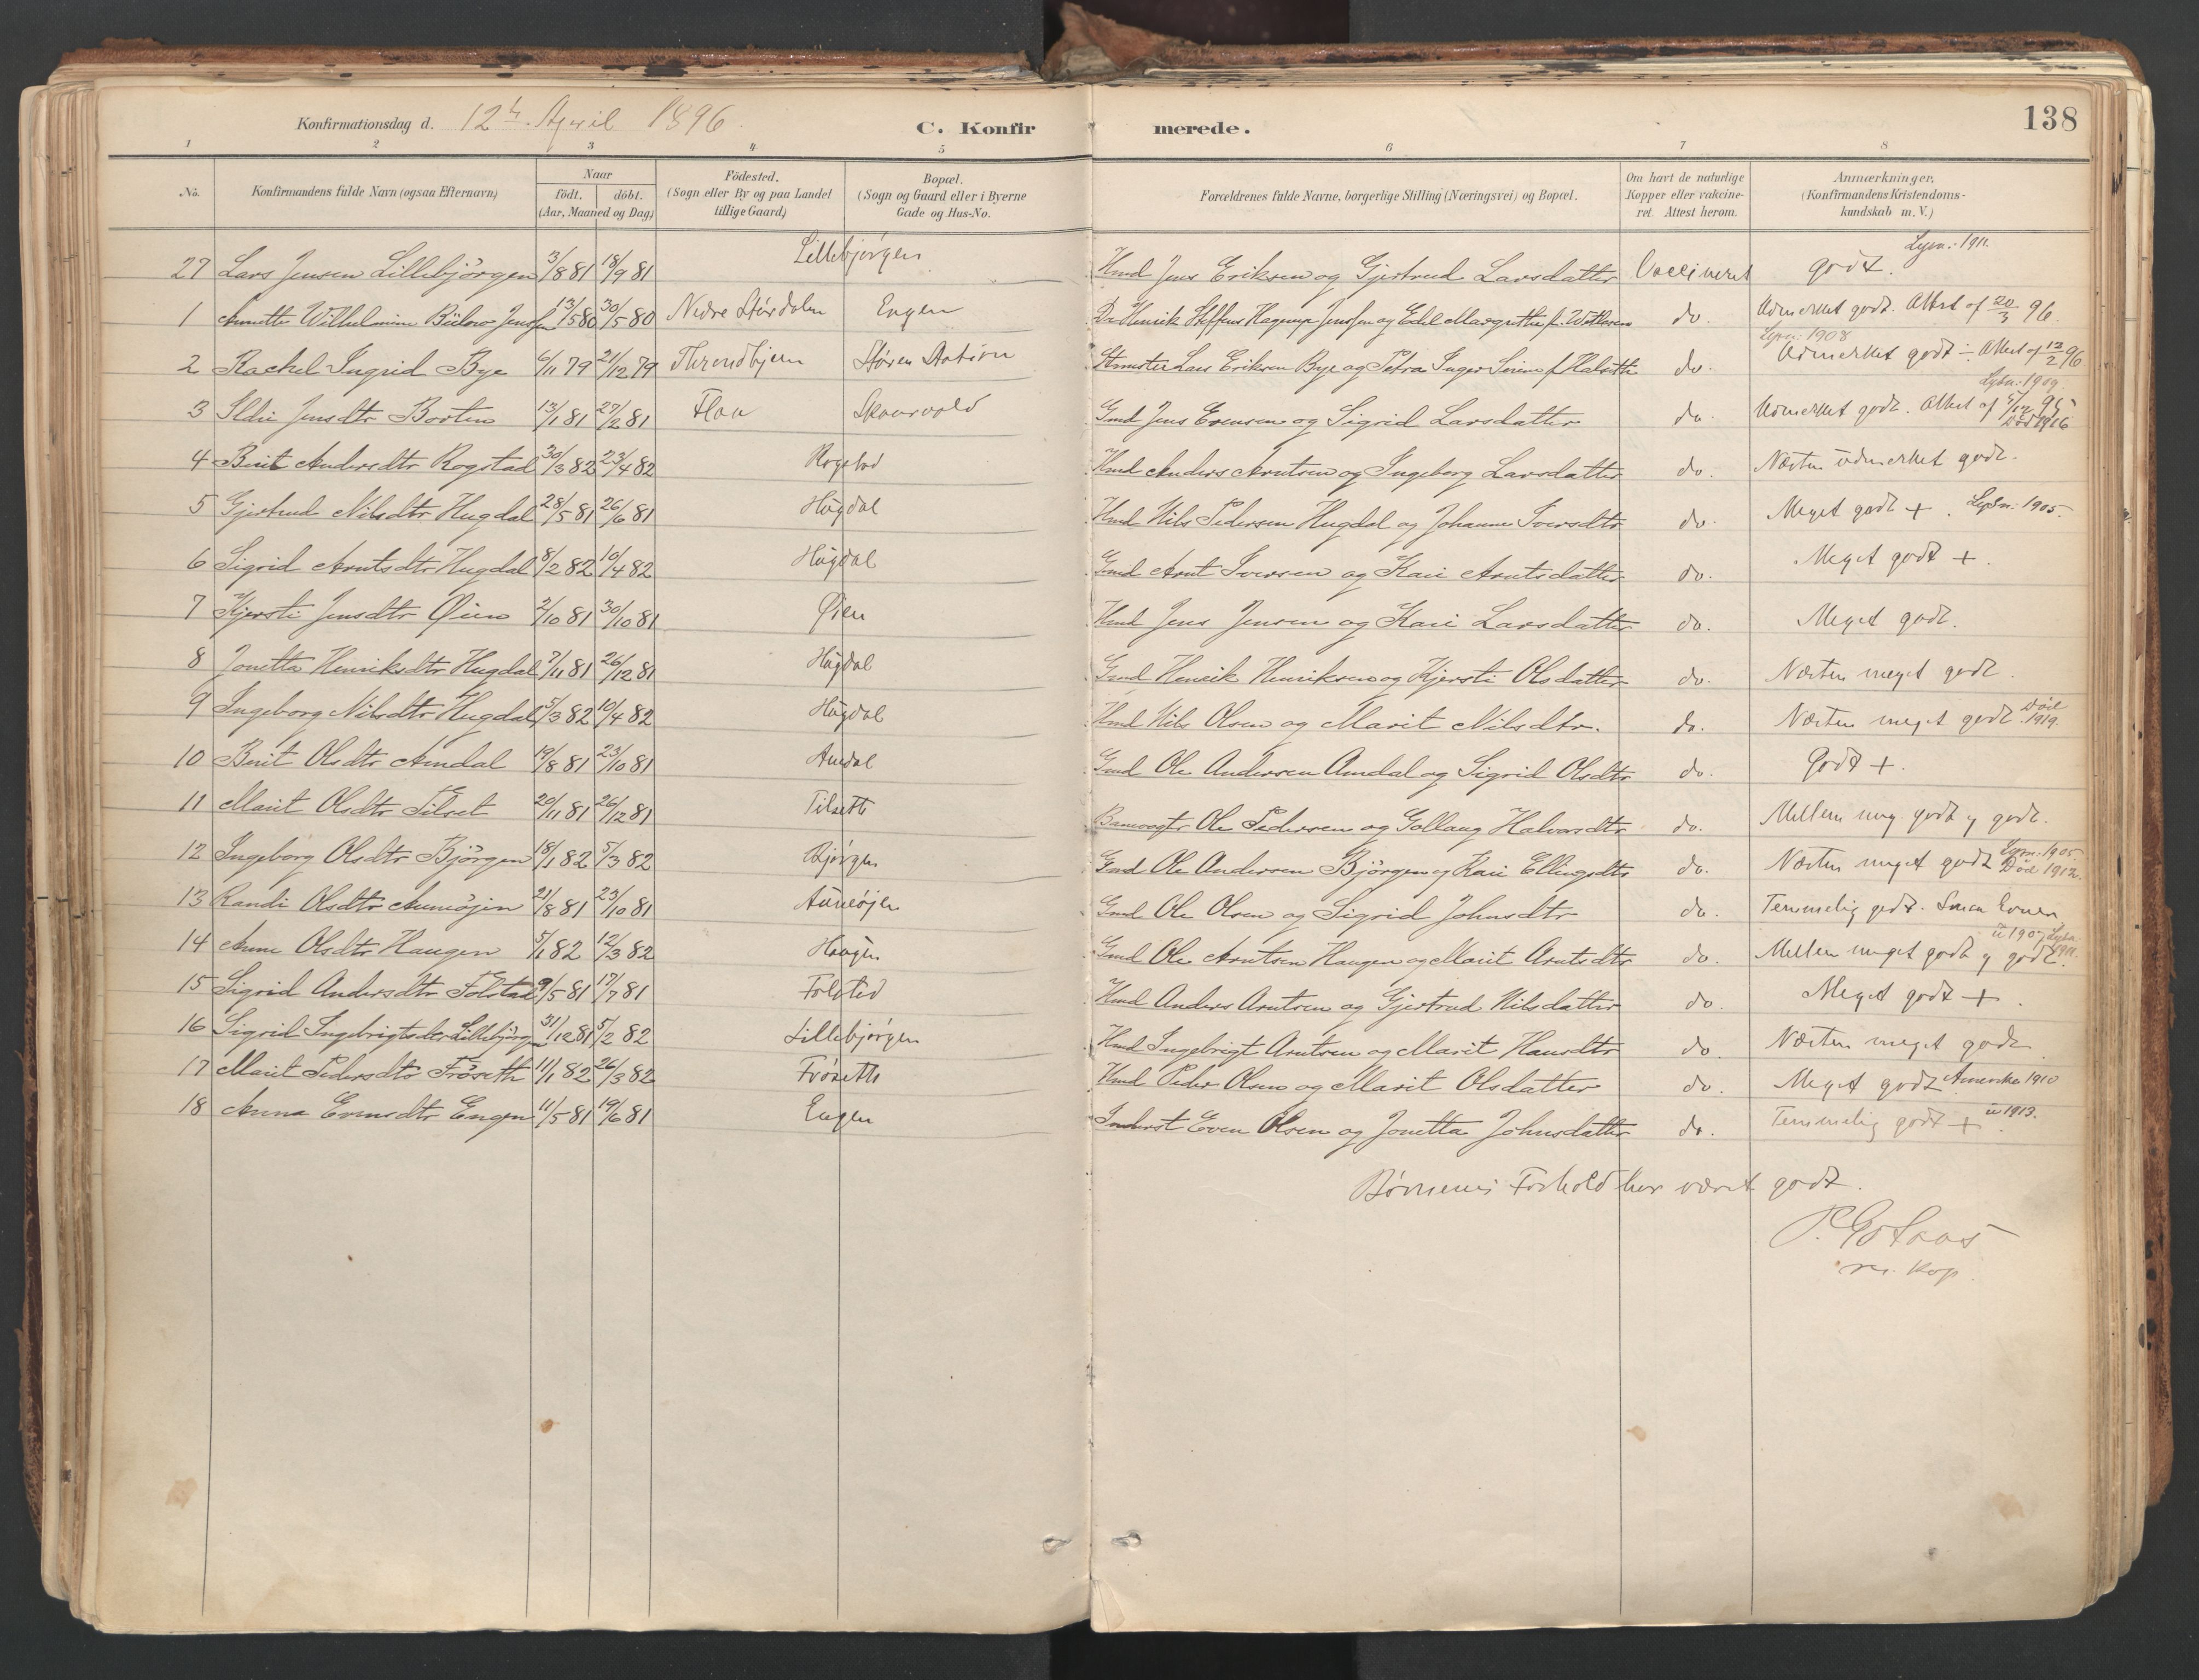 Konfirmationsdag d. 12te April 1896. C. Konfirmerede. 138
1 2 3 4 5 6 7 8
No. Konfirmandens fulde Navn (ogsaa Efternavn) Naar födt. döbt. (Aar, Maaned og Dag) Födested. (Sogn eller By og paa Landet tillige Gaard) Bopæl. (Sogn og Gaard eller i Byerne Gade og Hus-No. Forældrenes fulde Navne, borgerlige Stilling (Næringsvei) og Bopæl. Om havt de naturlige Kopper eller vakcineret. Attest herom. Anmærkninger. (Konfirmandens Kristendomskundskab m. V.)
27 Lars Jensen Lillebjörgen 3/8 81 18/9 81 Lillebjörgen Kmd Jens Eriksen og Gjertrud Larsdatter Vaccineret godt. Lysn: 1911.
1 Annette Wilhelmine Bülow Jenssen 13/5 80 30/5 80 Nedre Stördalen Engen Dr Henrik Steffens Hagerup Jenssen og Edel Margrethe f. do. Udmerket godt. Attest af 20/3 96.
2 Rachel Ingrid Bye 6/11 79 21/12 79 Throndhjem Stören Station Lars Eriksen Bye og Petra Inger Serine f. Halseth do. Lysn: 1908 Udmerket godt ÷ Attest af 12/2 96
3 Ildri Jensdtr Borten 13/1 81 27/2 81 Flaa Skaarvold Gmd Jens Evensen og Sigrid Larsdatter do. Udmerket godt. Attest af 5/12 95 Lysn: 1909. Död 1916
4 Berit Andersdtr Rogstad 30/3 82 23/4 82 Rogstad Kmd Anders Arntsen og Ingeborg Larsdatter do. Næsten udmerket godt.
5 Gjertrud Nilsdtr Hugdal 28/5 81 26/6 81 Hugdal Kmd Nils Pedersen Hugdal og Johanna Iversdtr do. Meget godt +. Lysn: 1905.
6 Sigrid Arntsdtr Hugdal 8/2 82 10/4 82 Hugdal Gmd Arnt Iversen og Kari Arntsdatter do. Meget godt +.
7 Kjersti Jensdtr Öien 2/10 81 30/10 81 Öien Kmd Jens Jensen og Kari Larsdatter do. Meget godt.
8 Jonetta Henriksdtr Hugdal 7/11 81 26/12 81 Hugdal Gmd Henrik Henriksen og Kjersti Olsdatter do. Næsten meget godt.
9 Ingeborg Nilsdtr Hugdal 5/3 82 10/4 82 Hugdal Kmd Nils Olsen og Marit Nilsdtr. do. Næsten meget godt. Död 1919.
10 Berit Olsdtr Amdal 19/8 81 23/10 81 Amdal Gmd Ole Andersen Amdal og Sigrid Olsdtr do. Godt +.
11 Marit Olsdtr Tilset 20/11 81 26/12 81 Tilseth Banevogter Ole Pedersen og Gollaug Halvorsdtr do. Mellem meg. godt og godt.
12 Ingeborg Olsdtr Björgen 18/1 82 5/3 82 Björgen Gmd Ole Andersen Björgen og Kari Ellingsdtr do. Næsten meget godt Lysn: 1905. Död 1912.
13 Randi Olsdtr Auneöjen 21/8 81 23/10 81 Auneöjen Gmd Ole Olsen og Sigrid Johnsdtr do. Temmelig godt. Smaa Evner
14 Anne Olsdtr Haugen 5/1 82 12/3 82 Haugen Gmd Ole Arntsen Haugen og Marit Arntsdtr do. Mellem meget godt og godt.
15 Sigrid Andersdtr Folstad 9/5 81 17/7 81 Folstad Kmd Anders Arntsen og Gjertrud Nilsdatter do. Meget godt +.
16 Sigrid Ingebrigtsdtr Lillebjörgen 31/12 81 5/2 82 Lillebjörgen Kmd Ingebrigt Arntsen og Marit Hansdtr do. Næsten meget godt.
17 Marit Pedersdtr Fröseth 11/1 82 26/3 82 Fröseth Kmd Peder Olsen og Marit Olsdatter do. Meget godt. Amerika 1910
18 Anna Evensdtr Engen 11/5 81 19/6 81 Engen Inderst Even Olsen og Jonetta Johnsdatter do. Temmelig godt +. u 1913.
Börnenes Forhold har været godt.
res. kap.